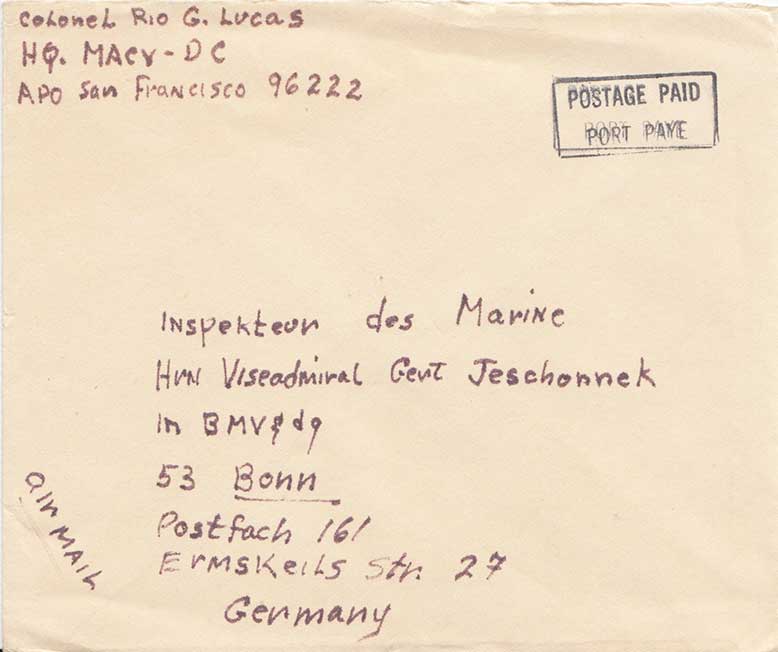 Colonel Rio G. Lucas
HQ. MACV-DC
APO San Francisco 96222
POSTAGE PAID
PORT PAYE
Inspekteur des Marine
Hrn Viseadmiral Gert Jeschonnek
in BMV&dg
53 Bonn
Postfach 161
Ermskeils Str. 27
Germany
air MAIL